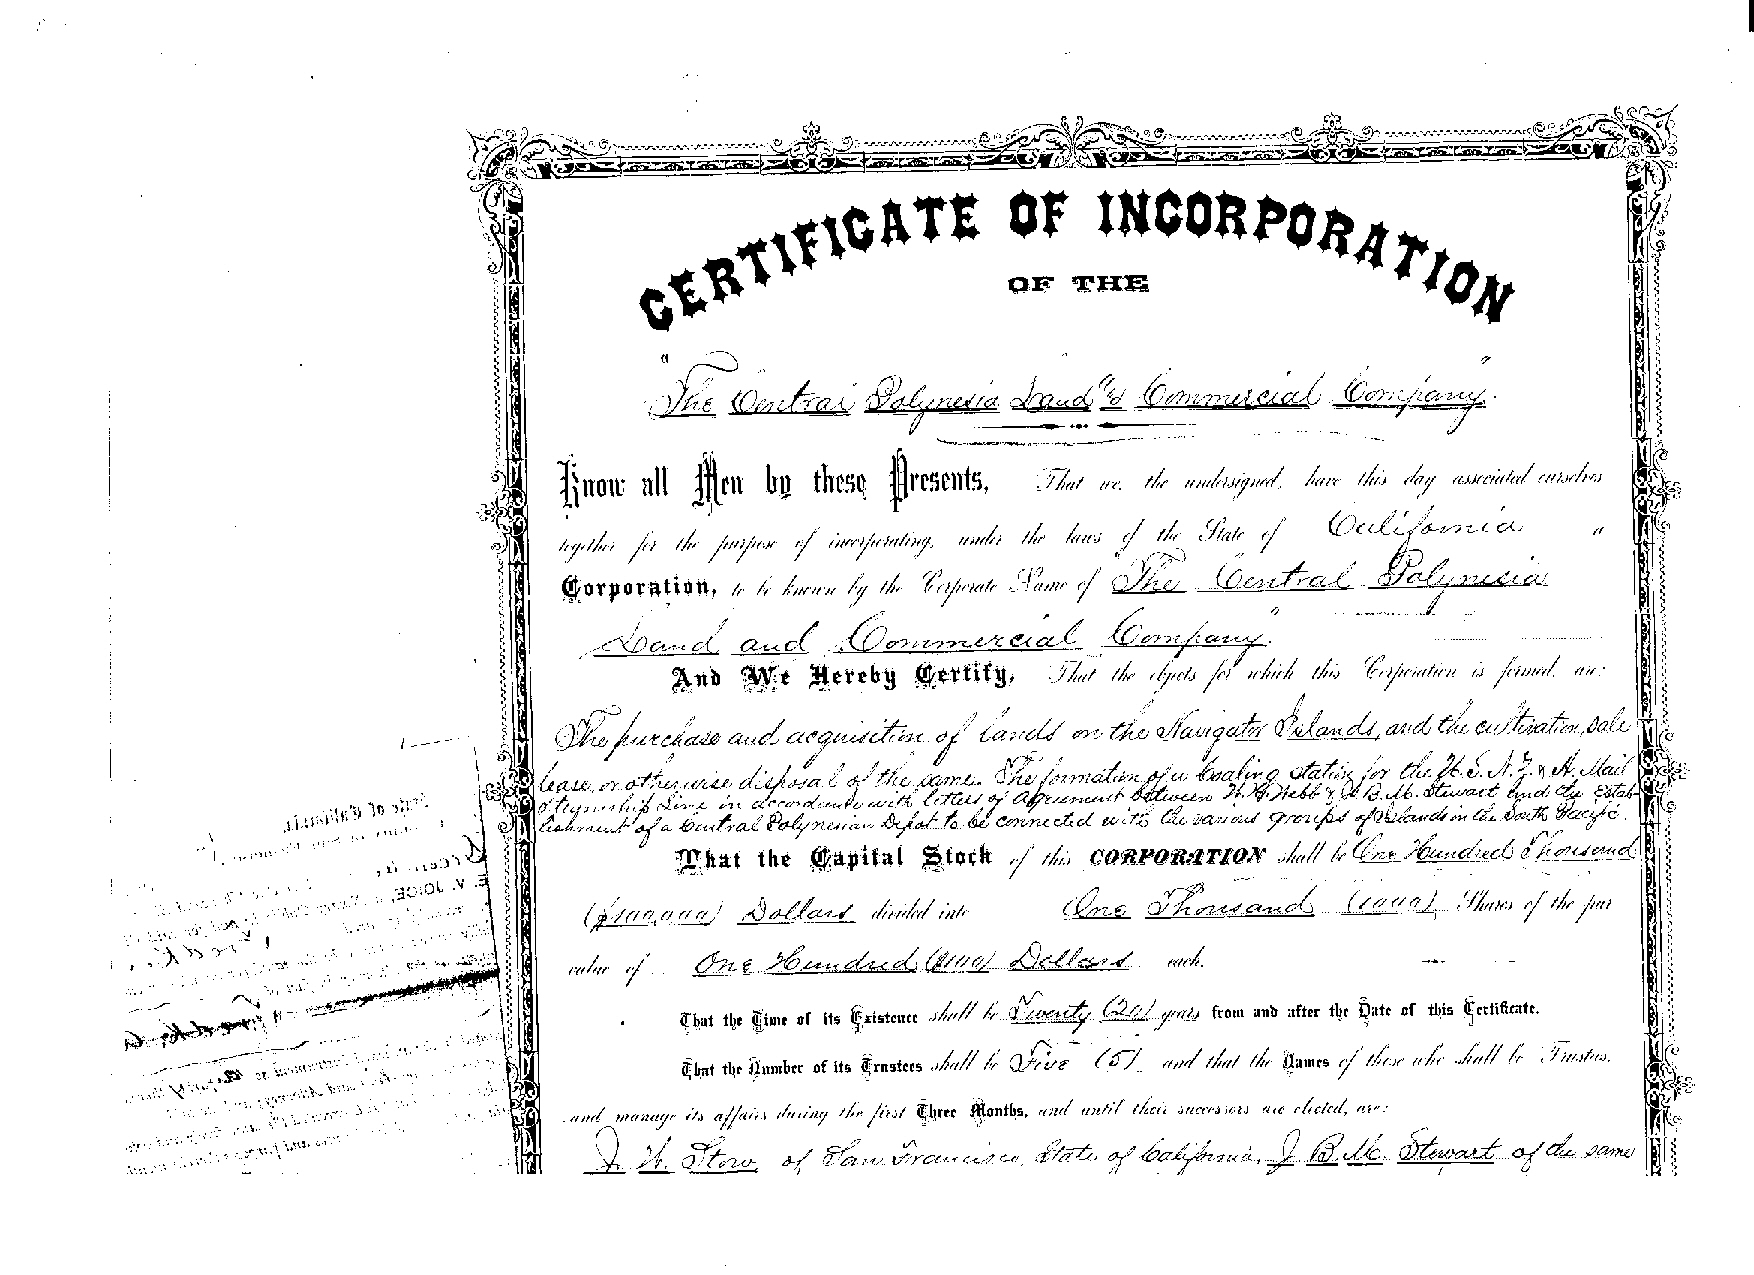 CERTIFICATE OF INCORPORATION
OF THE
"The Central Polynesia Land & Commercial Company".
Know all Men by these Presents, That we, the undersigned, have this day associated ourselves
together for the purpose of incorporating, under the laws of the State of California a
Corporation, to be known by the Corporate Name of The Central Polynesia
Land and Commercial Company".
And We Hereby Certify, That the objects for which this Corporation is formed, are:
The purchase and acquisition of lands on the Navigator Islands, and the cultivation, sale
lease, or otherwise disposal of the same. The formation of a Coaling station for the U. S. N. Z. & A. Mail
Steamship Line in accordance with letters of Agreement between W. H. Webb & J. B. M. Stewart and the Estab-
lishment of a Central Polynesian Depot to be connected with the various groups of Islands in the South Pacific.
That the Capital Stock of this CORPORATION shall be One Hundred Thousand
($100,000) Dollars divided into One Thousand (1000) Shares of the par
value of One Hundred ($100) Dollars each.
That the Time of its Existence shall be Twenty (20) years from and after the Date of this Certificate.
That the Number of its Trustees shall be Five (5) and that the Names of those who shall be Trustees,
and manage its affairs during the first Three Months, and until their successors are elected, are:
J. W. Stow of San Francisco, State of California, J B. M. Stewart of the same
State of California
E. V. JOICE